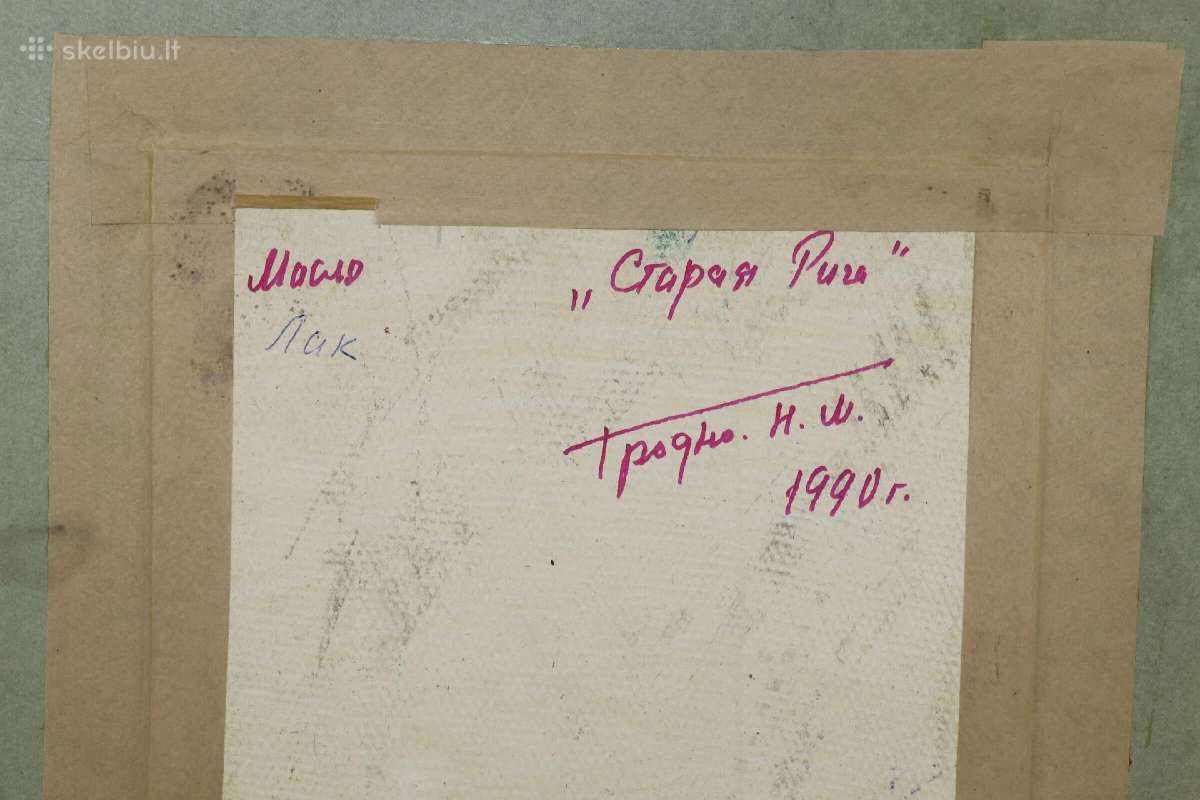 skelbiu.lt
Масло
Лак
„Старая Рига"
Гродно. Н. М.
1990 г.